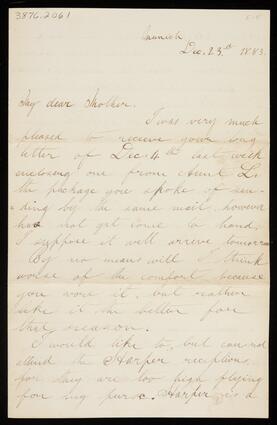 3876.2061
Munich
Dec. 23rd 1883.
My dear Mother.
I was very much
pleased to receive your long
letter of Dec. 4th last week
enclosing one from Aunt L.
the package you spoke of sen-
ding by the same mail however
has not yet come to hand,
I suppose it will arrive tomorrow
By no means will I think
worse of the comfort because
you wore it, but rather
like it the better for
that reason.
I would like to, but can not
attend the Harper receptions,
for they are too high flying
for my purse. Harper is a